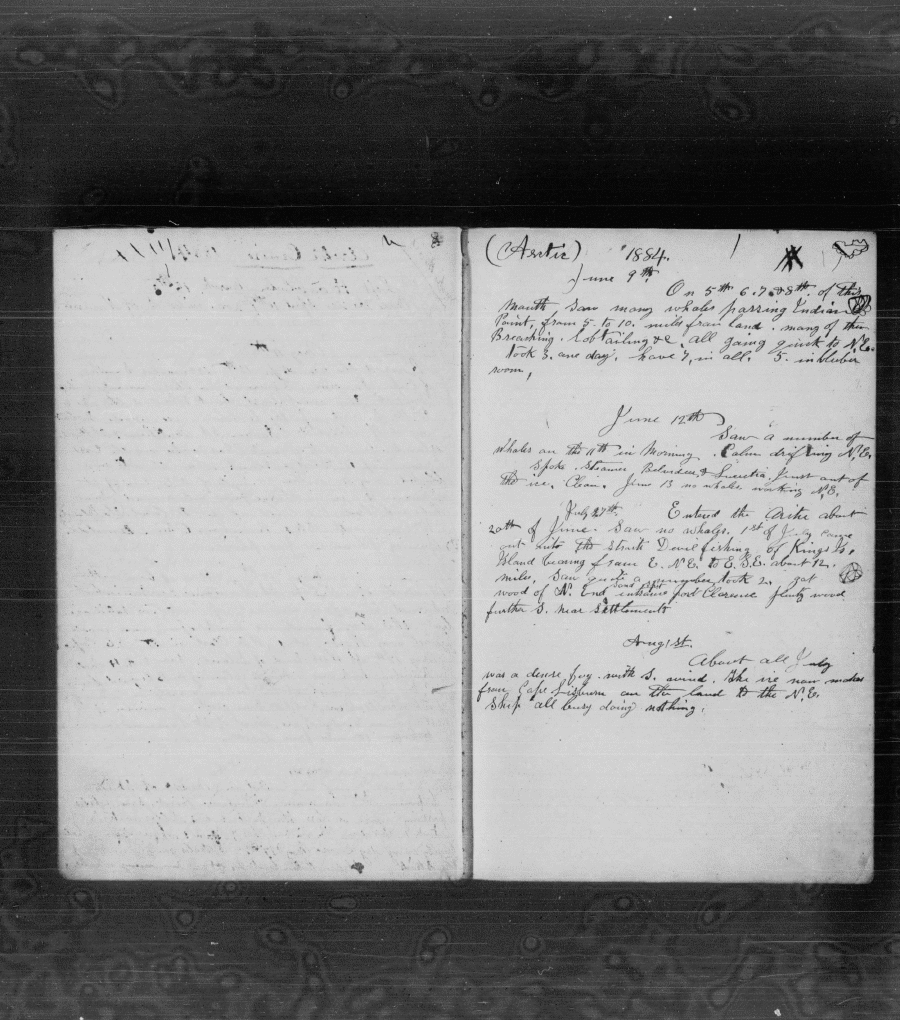 (Arctic) 1884.
June 9th
On 5th 6. 7. & 8th of this
Month Saw many whales passing Indian
Point, from 5. to 10. miles from land. many of them
Breaching. Lobtailing &c. all going quick to N.E.
took 3. one day, have 7, in all. 5. in bluber
room,
June 12th
Saw a number of
Whales on the 11th in Morning. Calm drifting N.E.
Spoke Steamer Belvedere, & Lucretia, just out of
the ice. Clean. June 13 no whales working N.E.
July 27th Entered the Artic about
20th of June. Saw no whales. 1st of July came
out into the Straits Devilfishing off Kings Is,
Island bearing from E. N.E. to E.S.E. about 12.
miles, Saw quite a number took 2. got
wood of N. End sand spit entrance port Clarence plenty wood
further S. near Settlements
Aug 1st.
About all July
was a dense fog. with S. wind. The ice now makes
from Cape Lisburn on the land to the N.E.
Ship all busy doing nothing.